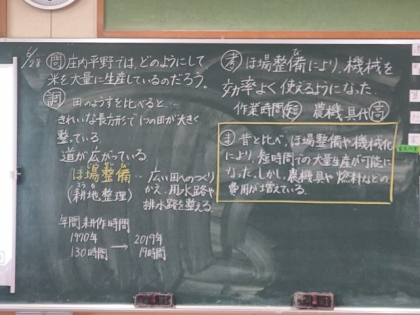 6/28
問 庄内平野では、どのようにして
米を大量に生産しているのだろう。
調 田のようすを比べると…
きれいな長方形で1つの田が大きく
整っている
道が広がっている
ほ場整備
(耕地整理)
こうち
広い田へのつくり
かえ、用水路や
排水路を整える
年間耕作時間
1970年 → 2019年
130時間 19時間
考 ほ場整備により、機械を
び
効率よく使えるようになった。
作業時間 短 農機具代 高
ま 昔と比べ、ほ場整備や機械化
により、短時間での大量生産が可能に
なった。しかし、農機具や燃料などの
費用が増えている。